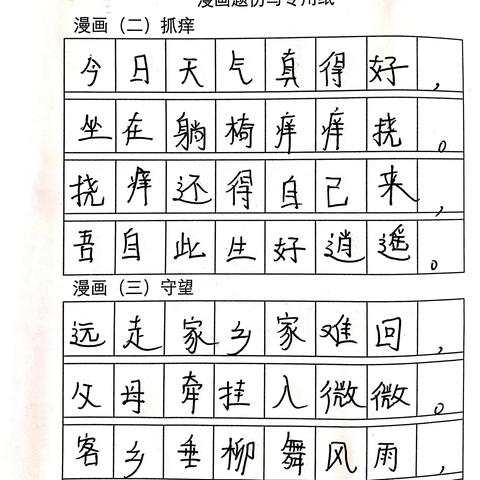 漫画题仿写专用纸
漫画（二）抓痒
今日天气真得好，
坐在躺椅痒痒挠。
挠痒还得自己来，
吾自此生好逍遥。
漫画（三）守望
远走家乡家难回，
父母牵挂入微微。
客乡垂柳舞风雨，